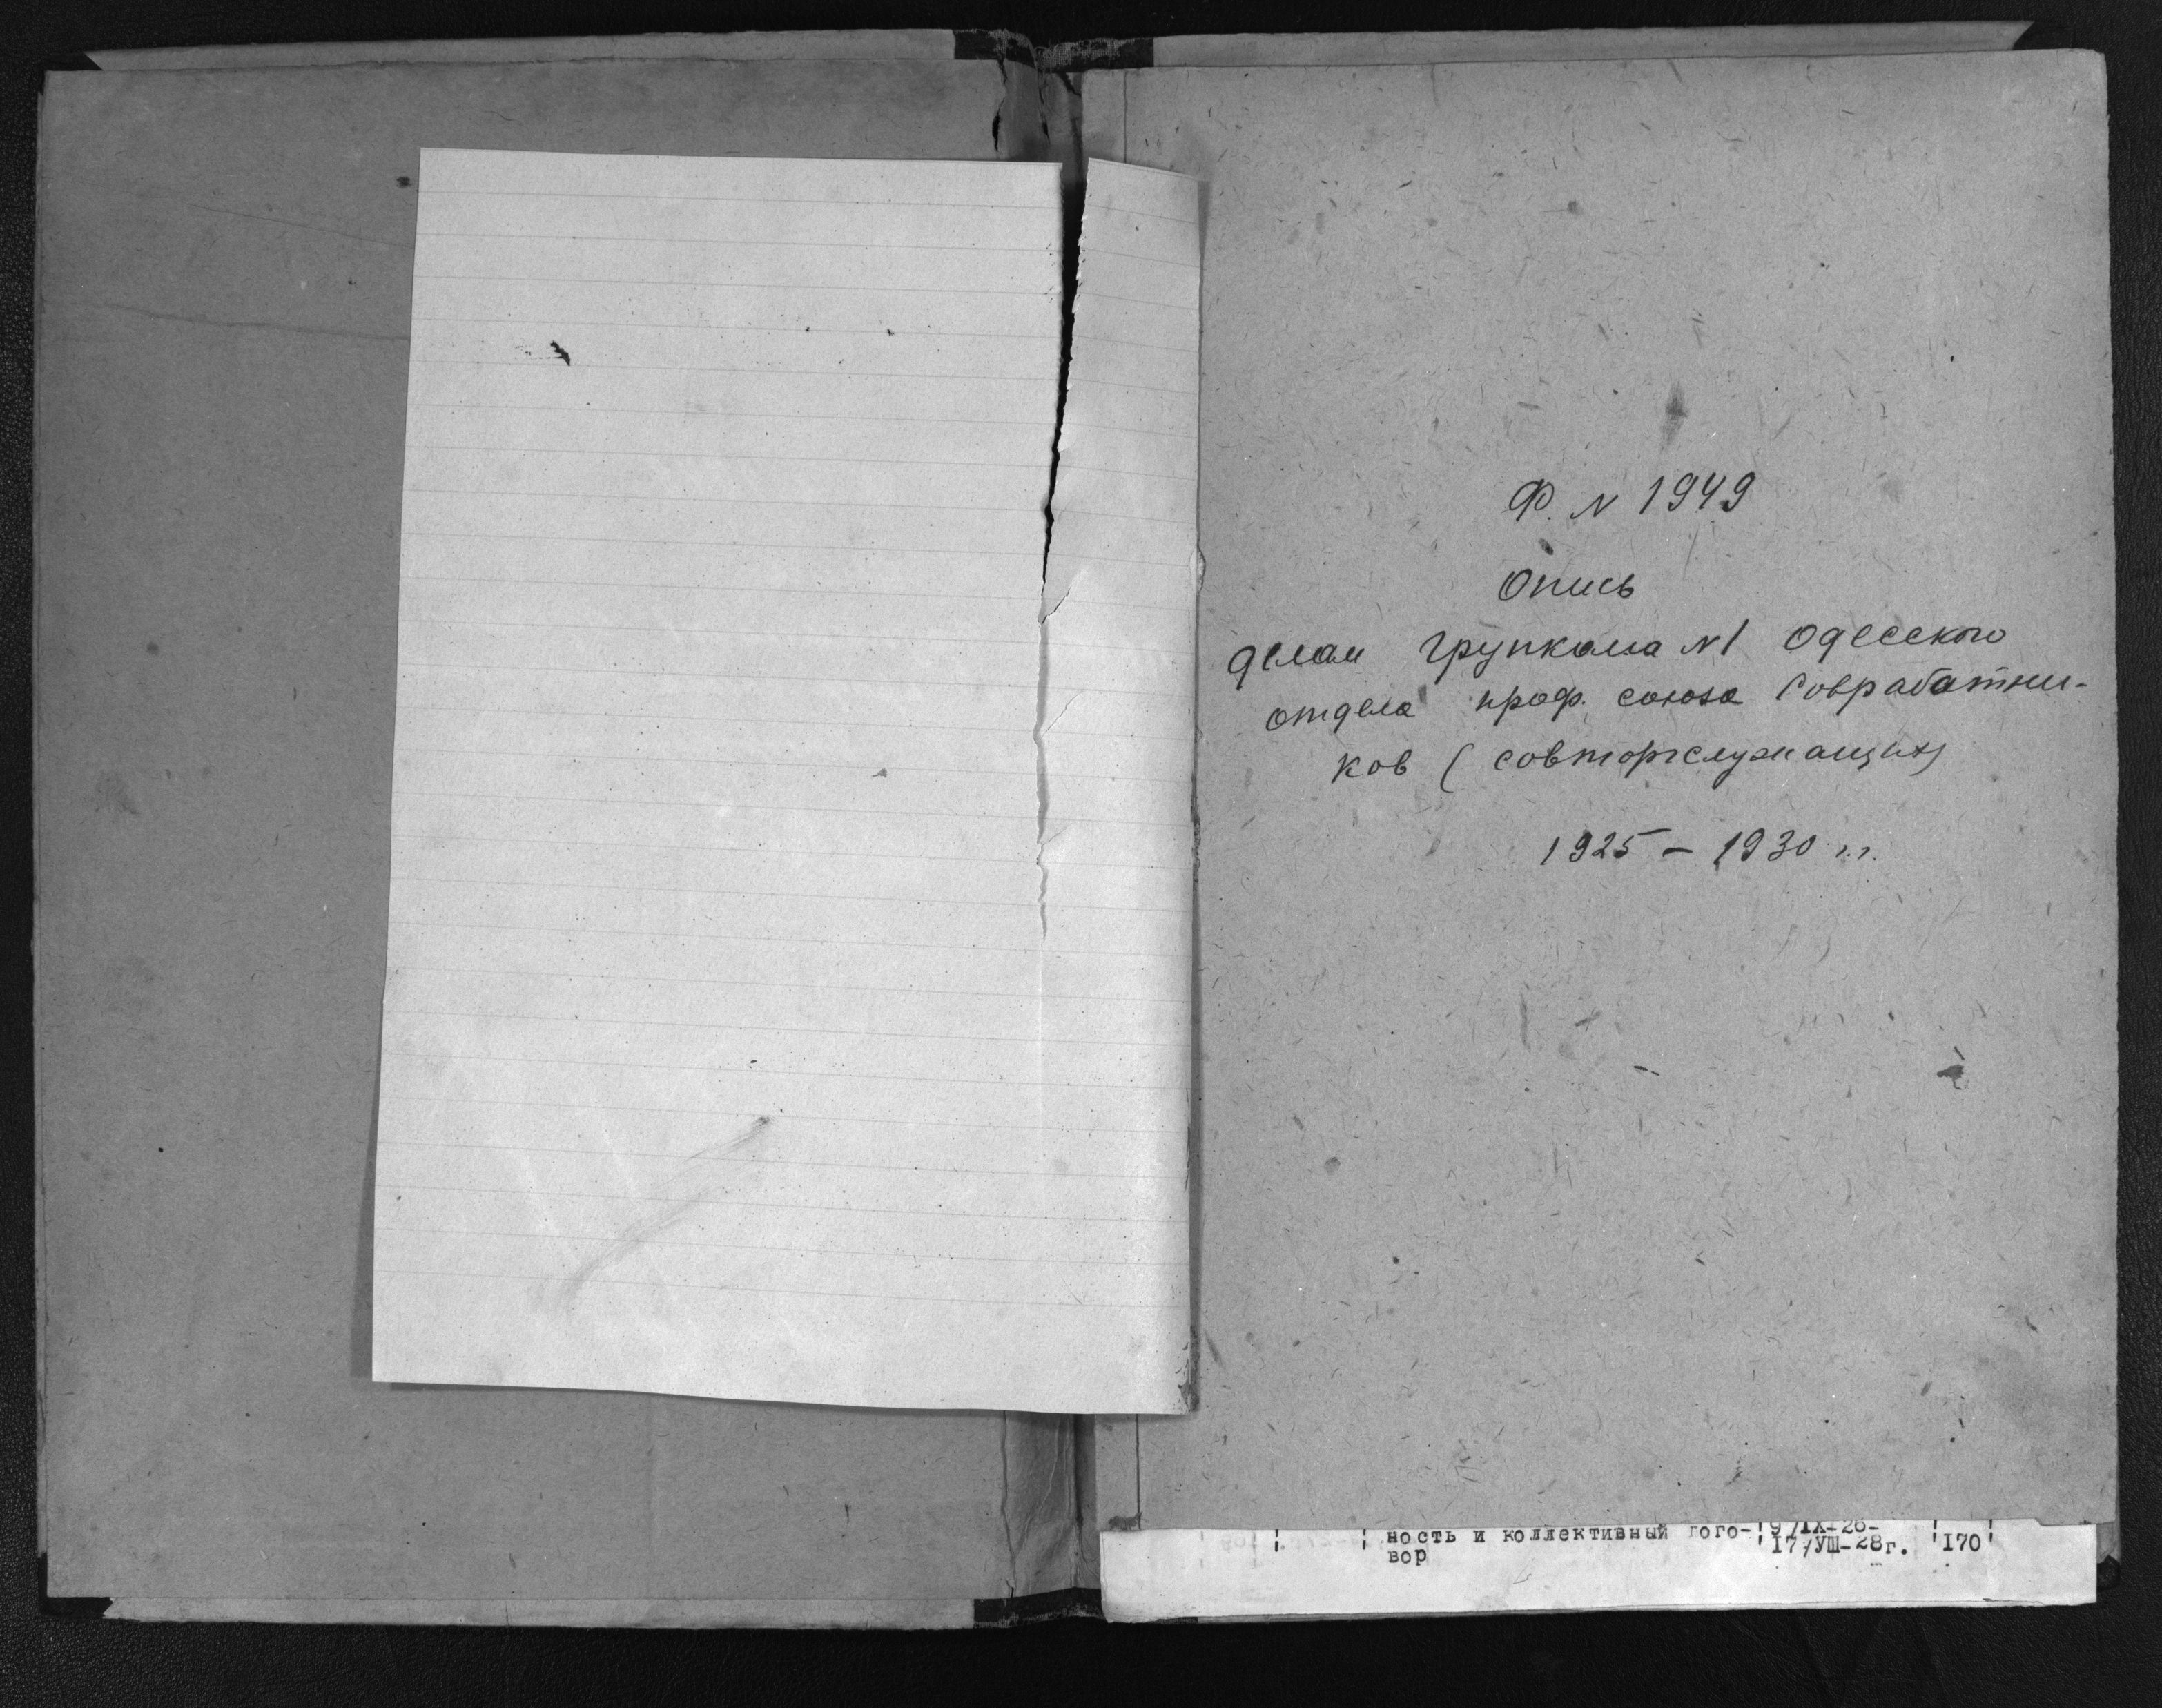 Ф. N 1949
Опись
делам групкома N1 Одесского
отдела проф. союза Совработни-
ков (совторгслужащих)
1925 – 1930 г.г.
ность и коллективный гого- 9/IХ-26-
вор 17/УШ-28г. 170